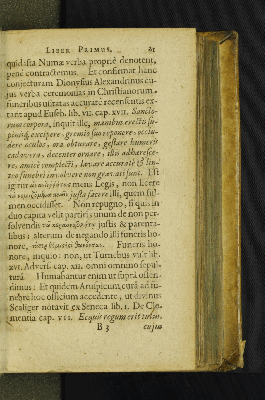 LIBER PRIMUS. 21
quidasta Numæ verba propriè denotent,
penè contractemus. Et confirmat hanc
conjecturam Dionysius Alexandrinus cu-
jus verba ceremonias in Christianorum
funeribus usitatas accuratè recensentis ex-
tant apud Euseb. lib. VII. cap. XVII. Sancto-
rum corpora, inquit ille, manibus erectis su-
pinis excipere, gremio suo reponere, occlu-
dere oculos, ora obturare, gestare humeris
cadavera, decenter ornare, illis adhæresce-
re, amicè complecti, lavare accuratè & lin-
teo funebri involvere non gravati sunt. Ist
igitur mens Legis, non licere
justa facere illi, quem ful-
men occidisset. Non repugno, si quis in
duo capita velit partiri: unum de non per-
solvendis justis & parenta-
libus: alterum de negando illi funeris ho-
nore, Funeris ho-
nore, inquio: non, ut Turnebus vult lib.
XVI. Advers. cap. XII. omni omnino sepul-
turâ. Humabantur enim ut suprà osten-
dimus: Et quidem Aruspicum curâ ad fu-
nebre hoc officium accedente, ut divinus
Scaliger notavit ex Seneca lib. I. De Cle-
mentia cap. VII. Ecquis regum erit tutus,
B 3 cujus